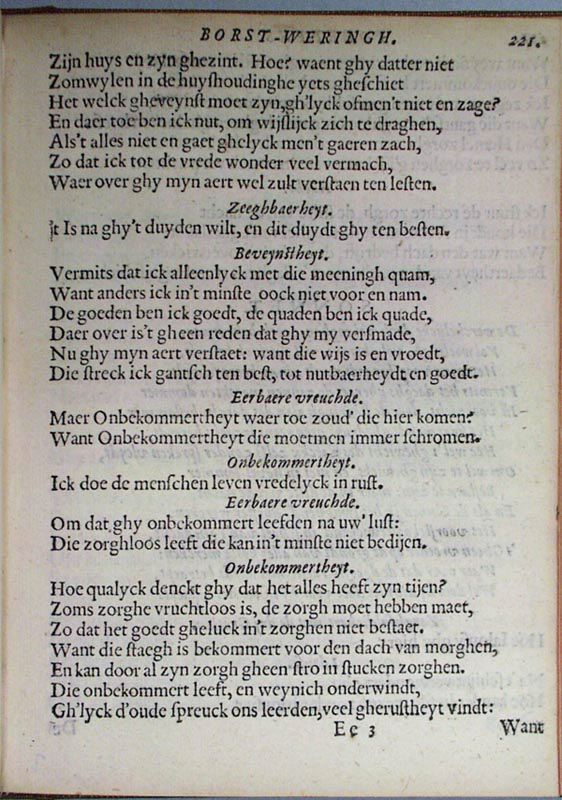 BORST-WERINGH. 221.
Zijn huys en zyn ghezint. Hoe? waent ghy datter niet
Zomwylen in de huyshoudinghe yets gheschiet
Het welck gheveynst moet zyn, gh'lyck ofmen't niet en zage?
En daer toe ben ick nut, om wijslijck zich te draghen,
Als't alles niet en gaet ghelyck men't gaeren zach,
Zo dat ick tot de vrede wonder veel vermach,
Waer over ghy myn aert wel zult verstaen ten lesten.
Zeeghbaerheyt.
't Is na ghy't duyden wilt, en dit duydt ghy ten besten.
Beveynstheyt.
Vermits dat ick alleenlyck met die meeningh quam,
Want anders ick in't minste oock niet voor en nam.
De goeden ben ick goedt, de quaden ben ick quade,
Daer over is't gheen reden dat ghy my versmade,
Nu ghy myn aert verstaet: want die wijs is en vroedt,
Die streck ick gantsch ten best, tot nutbaerheydt en goedt.
Eerbaere vreuchde.
Maer Onbekommertheyt waer toe zoud' die hier komen?
Want Onbekommertheyt die moetmen immer schromen.
Onbekommertheyt.
Ick doe de menschen leven vredelyck in rust.
Eerbaere vreuchde.
Om dat ghy onbekommert leefden na uw' lust:
Die zorghloos leeft die kan in't minste niet bedijen.
Onbekommertheyt.
Hoe qualyck denckt ghy dat het alles heeft zyn tijen?
Zoms zorghe vruchtloos is, de zorgh moet hebben maet,
Zo dat het goedt gheluck in't zorghen niet bestaet.
Want die staegh is bekommert voor den dach van morghen,
En kan door al zyn zorgh gheen stro in stucken zorghen.
Die onbekommert leeft, en weynich onderwindt,
Gh'lyck d'oude spreuck ons leerden, veel gherustheyt vindt:
Ee 3 Want